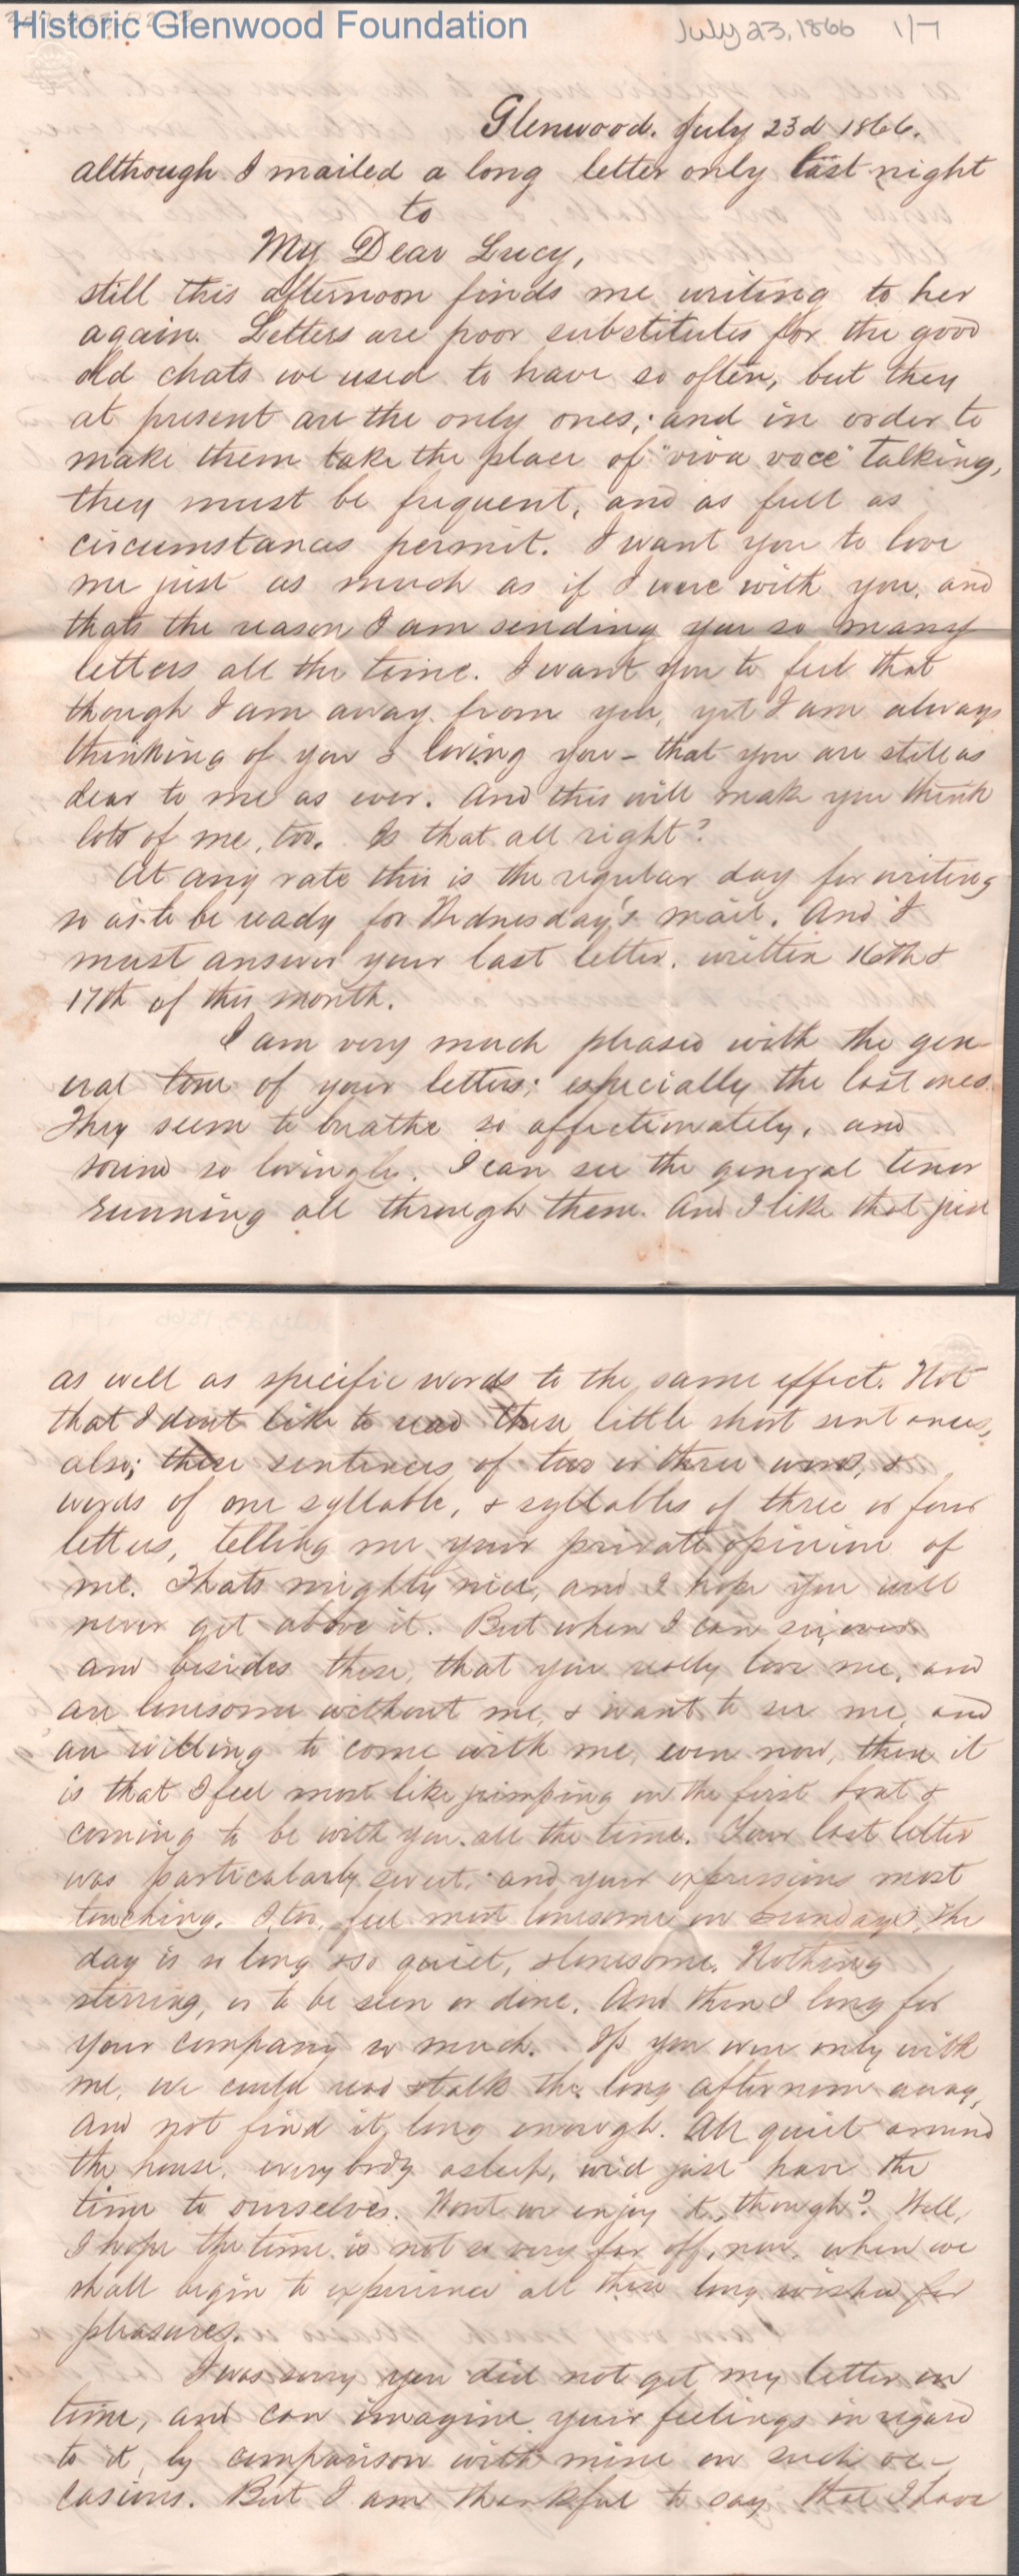 Historic Glenwood Foundation
July 23, 1866 1/7
Glenwood. July 23d 1866.
although I mailed a long letter only last night
to
My Dear Lucy,
still this afternoon finds me writing to her
again. Letters are poor substitutes for the good
old chats we used to have so often, but they
at present are the only ones; and in order to
make them take the place of "viva voce" talking,
they must be frequent, and as full as
circumstances permit. I want you to love
me just as much as if I were with you, and
thats the reason I am sending you so many
letters all the time. I want you to feel that
though I am away from you, yet I am always
thinking of you & loving you - that you are still as
dear to me as ever. And this will make you think
lots of me, too. Is that all right?
At any rate this is the regular day for writing
so as to be ready for Wednesday's mail. And I
must answer your last letter, written 16th &
17th of this month.
I am very much pleased with the gen-
eral tone of your letters; especially the last ones.
They seem to breathe so affectionately, and
sound so lovingly. I can see the general tenor
running all through them. And I like that just
as well as specific words to the same effect. Not
that I don't like to read these little short sentences,
also; these sentences of two or three words, &
words of one syllable, & syllables of three or four
letters, telling me your private opinion of
me. Thats mighty nice, and I hope you will
never get above it. But when I can see, over
and besides these, that you really love me, and
are lonesome without me, & want to see me, and
are willing to come with me, even now, then it
is that I feel most like jumping on the first boat &
coming to be with you all the time. Your last letter
was particularly sweet; and your expressions most
touching. I, too, feel most lonesome on Sundays, the
day is so long & so quiet, & lonesome. Nothing
stirring, or to be seen or done. And then I long for
your company so much. If you were only with
me, we could read & talk the long afternoon away,
and not find it long enough. All quiet around
the house, everybody asleep, we'd just have the
time to ourselves. Wont we enjoy it, though? Well,
I hope the time is not so very far off, now, when we
shall begin to experience all these long wished for
pleasures.
I was sorry you did not get my letter on
time, and can imagine your feelings in regard
to it, by comparison with mine on such oc-
casions. But I am thankful to say that I have